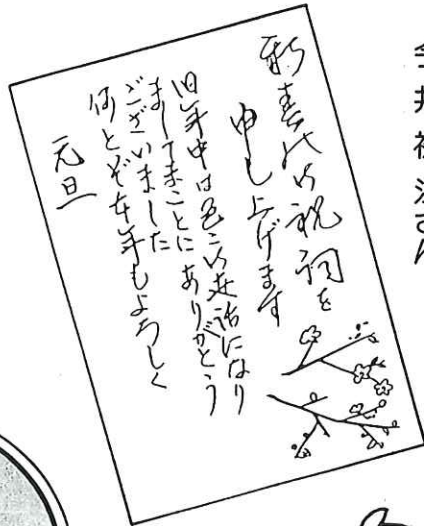 新春の御祝詞を
申し上げます
旧年中は色々お世話になり
ましてまことにありがとう
ございました
何とぞ本年もよろしく
元旦